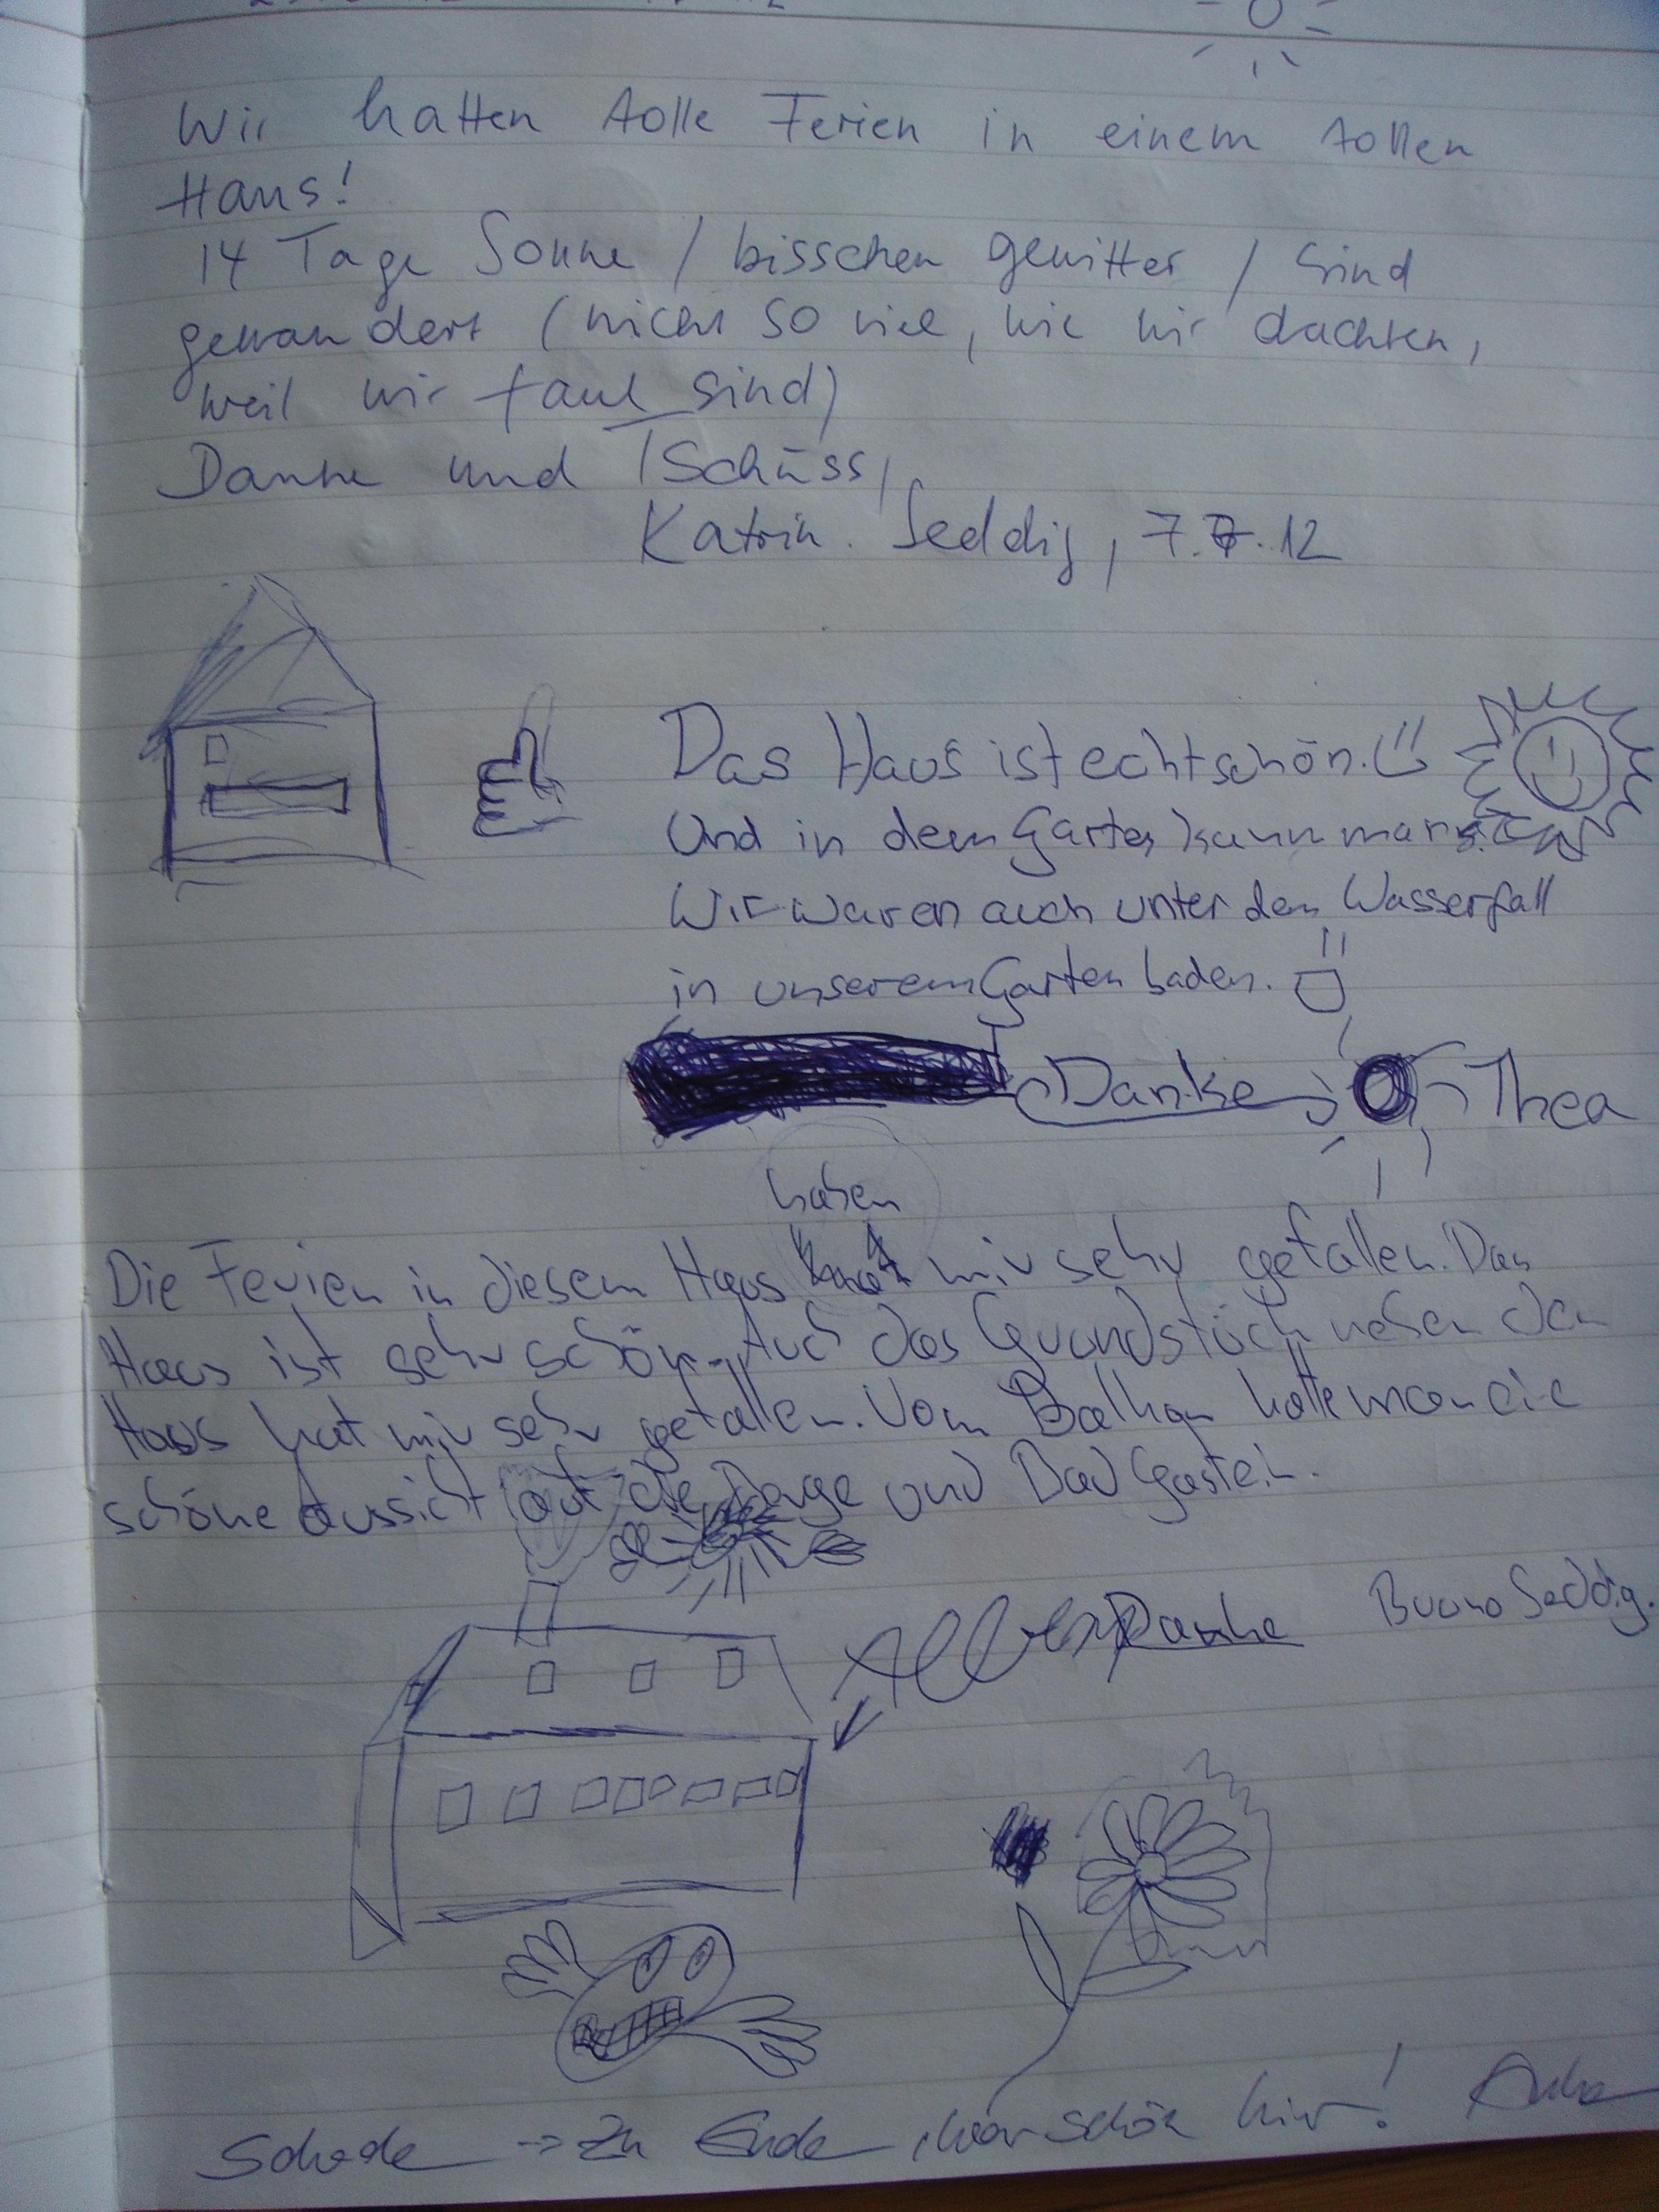 Wir hatten tolle Ferien in einem tollen
Haus!
14 Tage Sonne / bisschen gewitter / sind
gewandert (nicht so viel, wie wir dachten,
weil wir faul sind)
Danke und Tschüss,
Katrin Seddig, 7.7.12
Das Haus ist echt schön.
Und in dem Garten kann man
Wir waren auch unter den Wasserfall
in unserem Garten baden.
Danke Thea
haben
Die Ferien in diesem Haus mir sehr gefallen. Das
Haus ist sehr schön. Auch das Grundstück neben dem
Haus hat mir sehr gefallen. Vom Balkon hatte man eie
schöne aussicht auf die Berge und Bad Gastein.
Danke Bruno Seddig.
Schade → zu Ende, war schön hir!